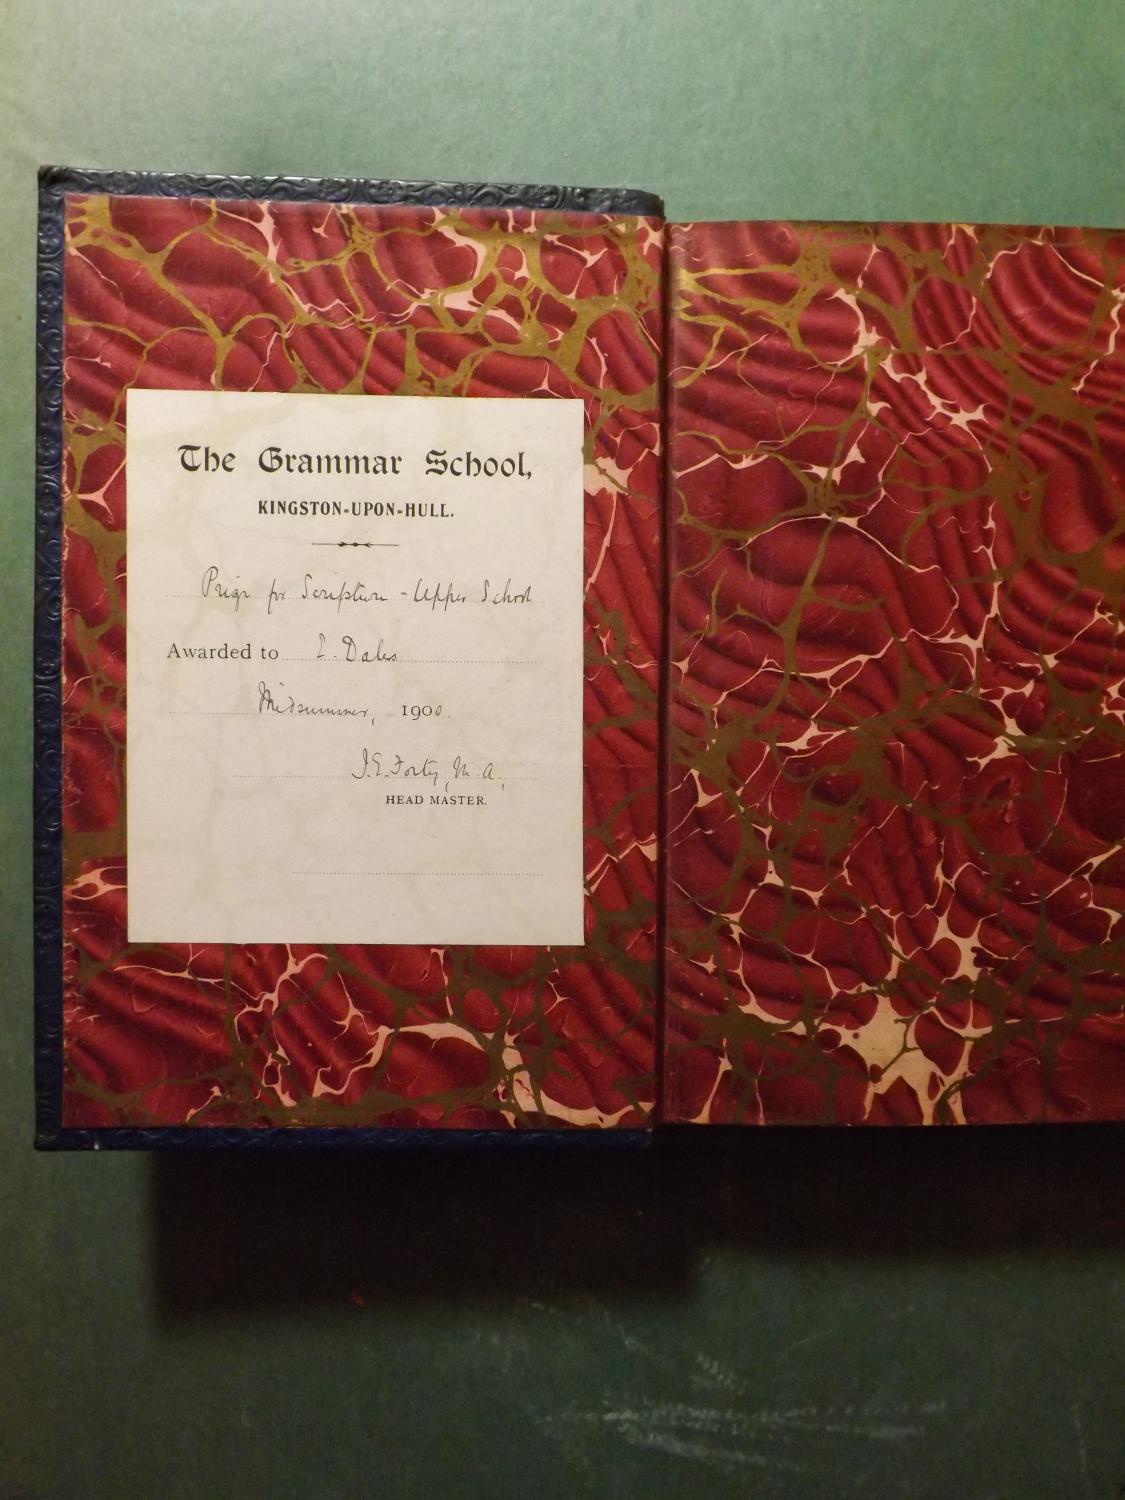 The Grammar School,
KINGSTON-UPON-HULL.
Prize for Scripture - Upper School
Awarded to E. Dales
Midsummer, 1900.
J. E. Forty, M. A.,
HEAD MASTER.